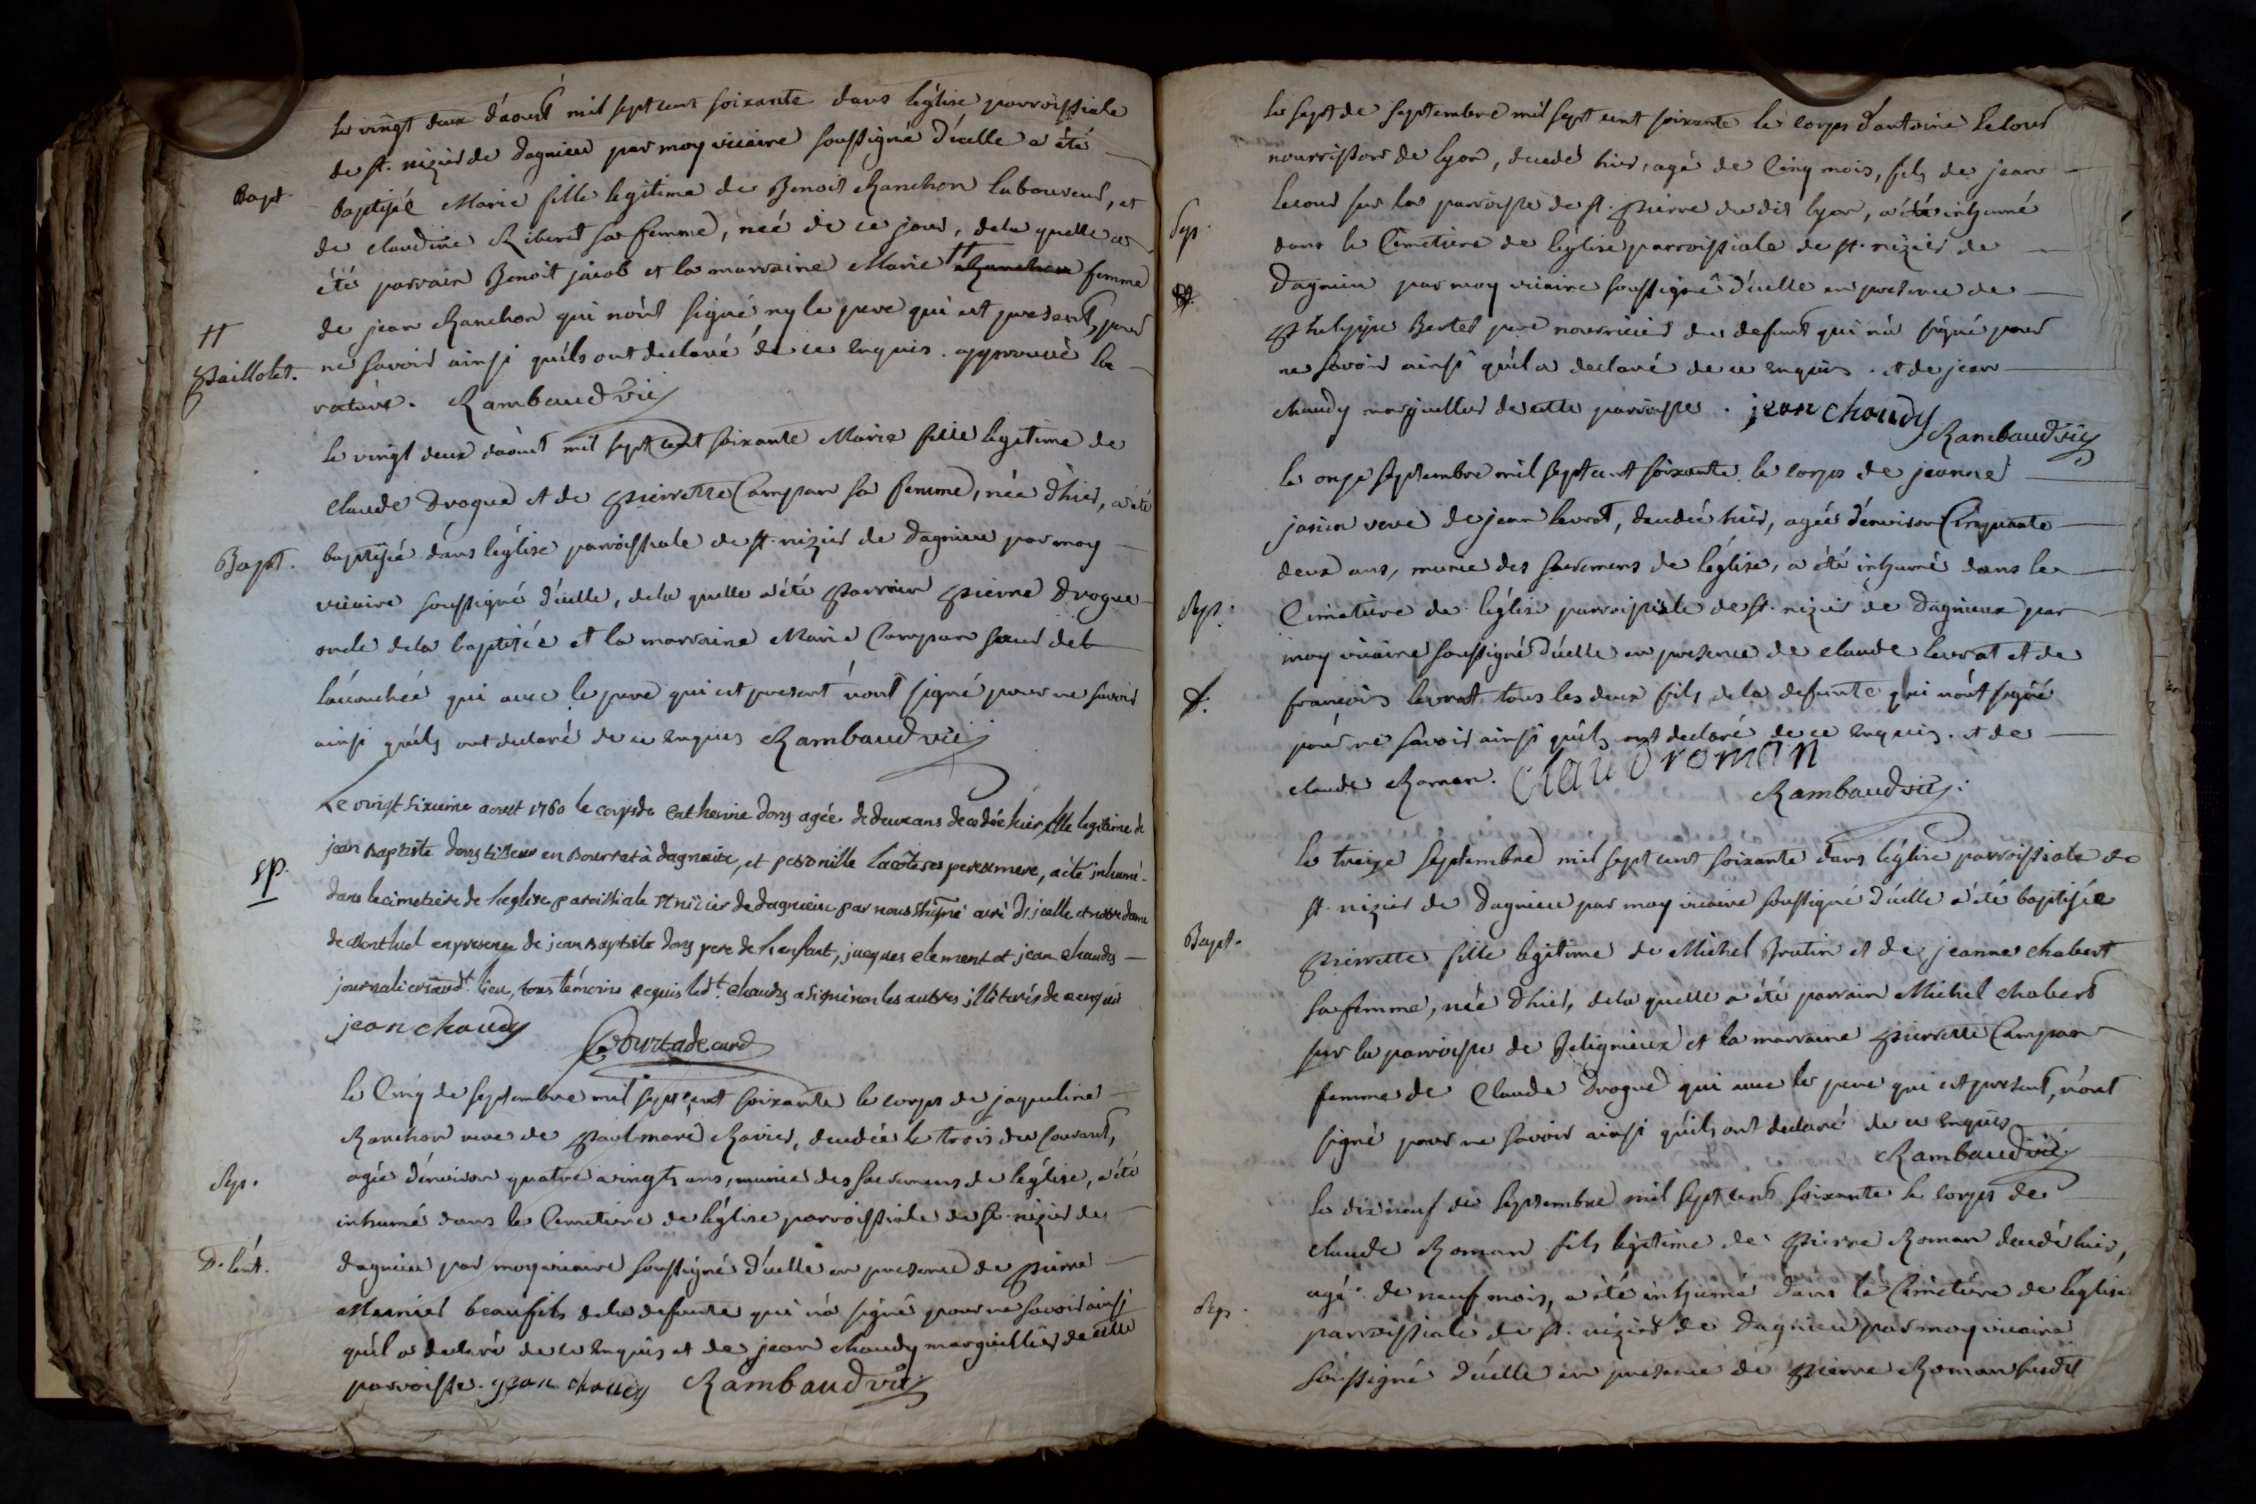 le vingt deux d'aoust mil sept cent soixante dans l'église parroissiale
de st. nizier de dagnieu par moy vicaire soussigné d'icelle a été
Bapt. baptisée Marie fille legitime de Benoit Ranchon laboureur, et
de claudine Riberet sa femme, née de ce jour, de la quelle a
été parrain Benoit jacob et la marraine Marie ++ femme
de jean Ranchon qui n'ont signé ny le pere qui est present, pour
++ Paillolet. ne savoir ainsi qu'ils ont declaré de ce enquis. approuvé la
rature. Rambaud vic
le vingt deux d'aoust mil sept cent soixante Marie fille legitime de
claude Drogue et de Pierrette Campan sa femme, née d'hier, a été
Bapt. baptisée dans l'église parroissiale de st. nizier de dagnieu par moy
vicaire soussigné d'icelle, de la quelle a été parrain Pierre Drogue
oncle de la baptisée et la marraine Marie Campan soeur de
l'acouchée qui avec le pere qui est present n'ont signé pour ne savoir
ainsi qu'ils ont declaré de ce enquis Rambaud vic
Le vingt sixieme aoust 1760 le corps de Catherine dons agée de deux ans decedée hier fille legitime de
jean Baptiste dons tisseur en Bourrat à dagnieu, et petronille lacôte ses pere et mere, a été inhumé
sp. dans le cimetiere de l'eglise paroissiale st nizier de dagnieu par nous soussigné curé d'icelle et notre dame
de Montluel en presence de jean Baptiste dons pere de l'enfant, jacques clement et jean chaudy
journaliers audt. lieu, tous témoins requis ledt. chaudy a signé non les autres illiterés de ce enquis
jean chaudy Courtade curé
le Cinq de septembre mil sept cent soixante le corps de jaqueline
Ranchon veve de Paul maré Ravier, decedée le trois du courant,
Sep. agée d'environ quatre vingts ans, munie des sacremens de l'église, a été
inhumé dans le Cimetiere de l'église parroissiale de st. nizier de
dagnieu par moy vicaire soussigné d'icelle en presence de Pierre
Meuniel beaufils de la defunte qui n'a signé pour ne savoir ainsi
qu'il a declaré de ce enquis et de jean chaudy marguillier de cette
parroisse. jean chaudy Rambaud vic
le sept de septembre mil sept cent soixante le corps d'antoine lecour
nourrisson de lyon, decedé hier, agé de Cinq mois, fils de jean
Sep. lecour sur la parroisse de st. Pierre du dit lyon, a été inhumé
dans le Cimetiere de l'église parroissiale de st. nizier de
dagnieu par moy vicaire soussigné d'icelle en presence de
Phelippe Bertet pere nourricier du defunt qui n'a signé pour
ne savoir ainsi qu'il a declaré de ce enquis. et de jean
chaudy marguillier de cette parroisse. jean chaudy
Rambaud vic
le onze septembre mil sept cent soixante le corps de jeanne
josin veve de jean levrat, decedée hier, agée d'environ Cinquante
deux ans, munie des sacremens de l'église, a été inhumé dans le
Sep. Cimetiere de l'église parroissiale de st. nizier de dagnieux par
moy vicaire soussigné d'icelle en presence de claude levrat et de
françois levrat tous les deux fils de la defunte qui n'ont signé
pour ne savoir ainsi qu'ils ont declaré de ce enquis. et de
claude Roman. Claud roman
Rambaud vic.
le treize septembre mil sept cent soixante dans l'église parroissiale de
st. nizier de dagnieu par moy vicaire soussigné d'icelle a été baptisée
Bapt. Pierrette fille legitime de Michel Brutin et de jeanne chabert
sa femme, née d'hier, de la quelle a été parrain Michel chabert
sur la parroisse de Jelignieux et la marraine Pierrette Campan
femme de Claude Drogue qui avec le pere qui est present, n'ont
signé pour ne savoir ainsi qu'ils ont declaré de ce enquis
Rambaud vic
le dix neuf de septembre mil sept cent soixante le corps de
claude Roman fils legitime de Pierre Roman decedé hier,
Sep. agé de neuf mois, a été inhumé dans le Cimetiere de l'eglise
parroissiale de st. nizier de dagnieu par moy vicaire
soussigné d'icelle en presence de Pierre Roman sudit